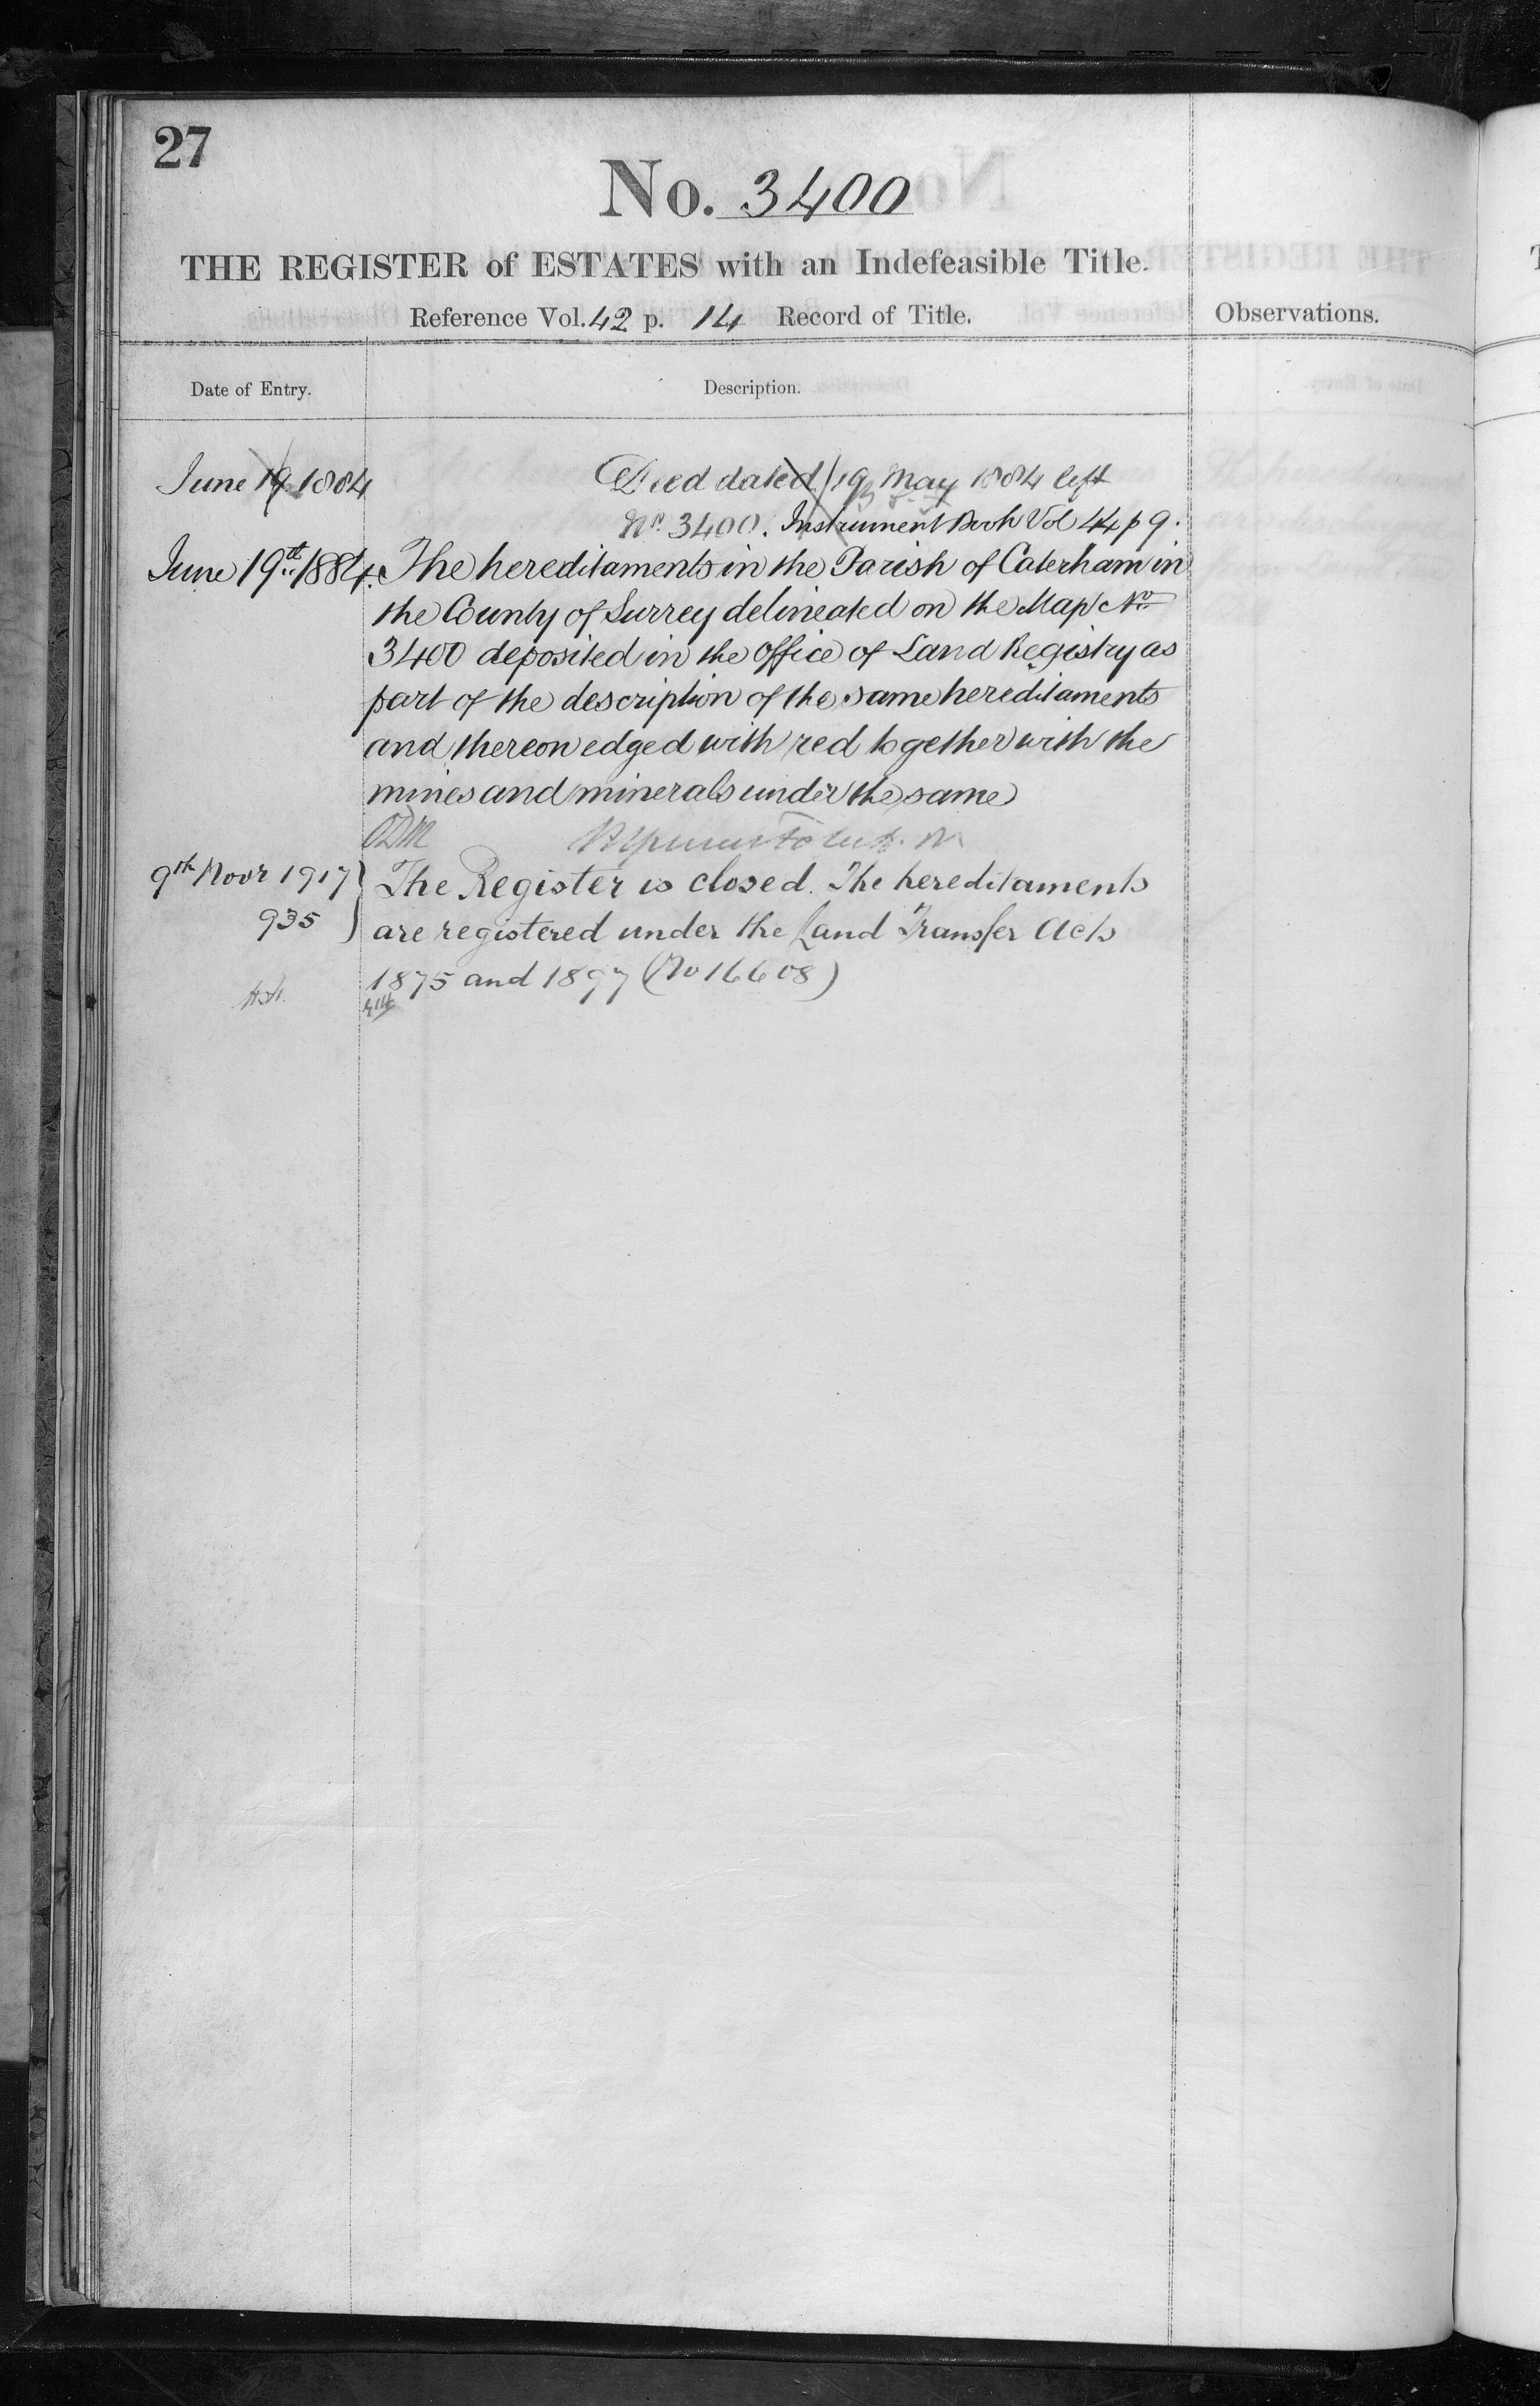 27
No. 3400
THE REGISTER of ESTATES with an Indefeasible Title.
Reference Vol. 42 p. 14 Record of Title.
Observations.
Date of Entry.
Description.
June 19 1884
Deed dated 19 May 1884 left
No. 3400. Instrument Book Vol 44 p 9.
June 19th 1884. The hereditaments in the Parish of Caterham in
the County of Surrey delineated on the Map No
3400 deposited in the Office of Land Registry as
part of the description of the same hereditaments
and thereon edged with red together with the
mines and minerals under the same
9th Novr 1917 The Register is closed. The hereditaments
935 are registered under the Land Transfer Acts
1875 and 1897 (No 16608)